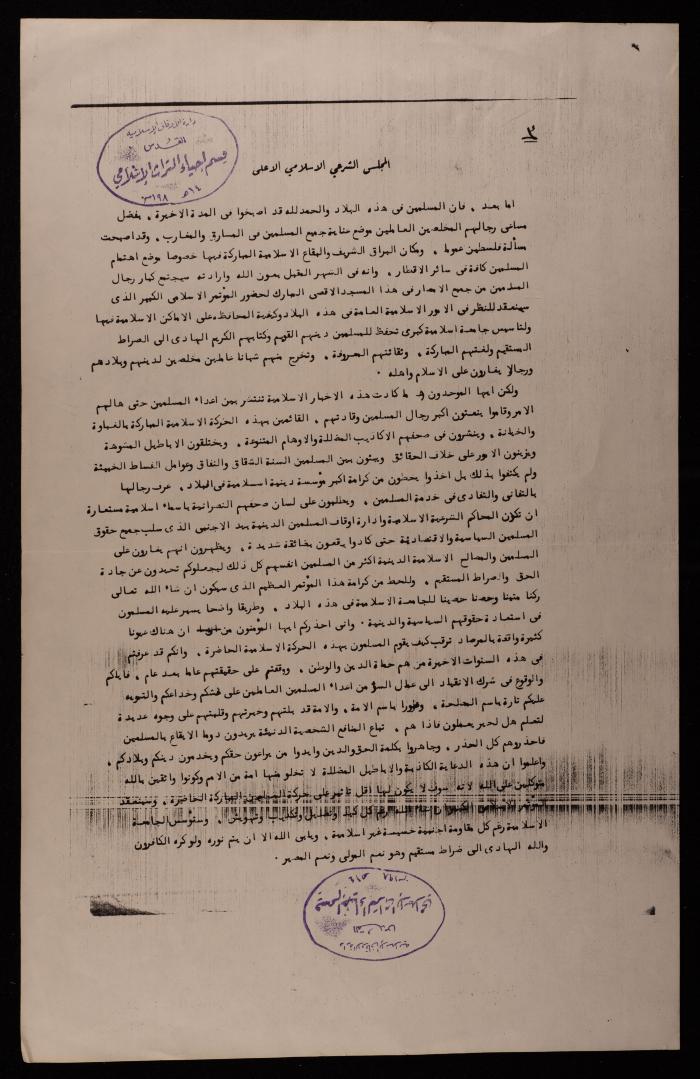 ٣
دارة الاوقاف الاسلامية
القدس
قسم احياء التراث الإسلامي
المجلس الشرعي الاسلامي الاعلى
اما بعد ، فان المسلمين في هذه البلاد والحمد لله قد اصبحوا في المدة الاخيرة ، بفضل
مساعى رجالهم المخلصين العاملين موضع عناية جميع المسلمين في المشارق والمغارب ، وقد اصبحت
مسألة فلسطين عموما ، ومكان البراق الشريف والبقاع الاسلامية المباركة فيها خصوصا موضع اهتمام
المسلمين كافة في سائر الاقطار ، وانه في الشهر المقبل بعون الله وارادته سيجتمع كبار رجال
المسلمين من جميع الامصار في هذا المسجد الاقصى المبارك لحضور المؤتمر الاسلامي الكبير الذى
سينعقد للنظر في الامور الاسلامية العامة في هذه البلاد وكيفية المحافظة على الاماكن الاسلامية فيها
ولتأسيس جامعة اسلامية كبرى تحفظ للمسلمين دينهم القويم وكتابهم الكريم الهادى الى الصراط
المستقيم ولغتهم المباركة ، وثقافتهم المعروفة ، وتخرج منهم شبانا عاملين مخلصين لدينهم وبلادهم
ورجالا يغارون على الاسلام واهله .
ولكن ايها الموحدون ما كادت هذه الاخبار الاسلامية تنتشر بين اعداء المسلمين حتى هالهم
الامر وقاموا ينعتون اكبر رجال المسلمين وقادتهم ، القائمين بهذه الحركة الاسلامية المباركة بالغباوة
والخيانة ، وينشرون في صحفهم الاكاذيب المضللة والاوهام المتنوعة ، ويختلقون الاباطيل المشوهة
ويزينون الامور على خلاف الحقائق ويبثون بين المسلمين السنة الشقاق والنفاق وعوامل الفساد الخبيثة
ولم يكتفوا بذلك بل اخذوا يحطون من كرامة اكبر مؤسسة دينية اسلامية في البلاد ، عرف رجالها
بالتفانى والتفادى في خدمة المسلمين ، ويطلبون على لسان صحفهم النصرانية باسماء اسلامية مستعارة
ان تكون المحاكم الشرعية الاسلامية وادارة اوقاف المسلمين الدينية بيد الاجنبي الذى سلب جميع حقوق
المسلمين السياسية والاقتصادية حتى كادوا يقعون بضائقة شديدة ، ويظهرون انهم يغارون على
المسلمين والمصالح الاسلامية الدينية اكثر من المسلمين انفسهم كل ذلك ليجعلوكم تحيدون عن جادة
الحق والصراط المستقيم ، وللحط من كرامة هذا المؤتمر العظيم الذى سيكون ان شاء الله تعالى
ركنا متينا وحصنا حصينا للجامعة الاسلامية في هذه البلاد ، وطريقا واضحا يسير عليه المسلمون
في استعادة حقوقهم السياسية والدينية . وانى احذركم ايها المؤمنون من ان هناك عيونا
كثيرة واقفة بالمرصاد ترقب كيف يقوم المسلمون بهذه الحركة الاسلامية الحاضرة ، وانكم قد عرفتم
في هذه السنوات الاخيرة من هم حماة الدين والوطن ، ووقفتم على حقيقتهم عاما بعد عام ، فاياكم
والوقوع في شرك الانقياد الى عمال السوء من اعداء المسلمين العاملين على غشكم وخداعكم والتمويه
عليكم تارة باسم المصلحة ، وطورا باسم الامة ، والامة قد بلتهم وخبرتهم وقلبتهم على وجوه عديدة
لتعلم هل لخير يعملون فاذا هم ، تباع المنافع الشخصية الدنيئة يريدون دوما الايقاع بالمسلمين
فاحذروهم كل الحذر ، وجاهروا بكلمة الحق والدين وايدوا من يراعون حقكم ويخدمون دينكم وبلادكم ،
واعلموا ان هذه الدعاية الكاذبة والاباطيل المضللة لا تخلو منها امة من الامم وكونوا واثقين بالله
متوكلين على الله لانه سوف لا يكون لها اقل تأثير على حركة المسلمين المباركة الحاضرة ، وسينعقد
المؤتمر الاسلامي الكبير ان شاء الله رغم كل كيد وتضليل وتكذيب وتشويش ، وستؤسس الجامعة
الاسلامية رغم كل مقاومة اجنبية خسيسة غير اسلامية ، ويابى الله الا ان يتم نوره ولو كره الكافرون
والله الهادى الى صراط مستقيم وهو نعم المولى ونعم النصير .
قسم احياء التراث الإسلامي
القدس